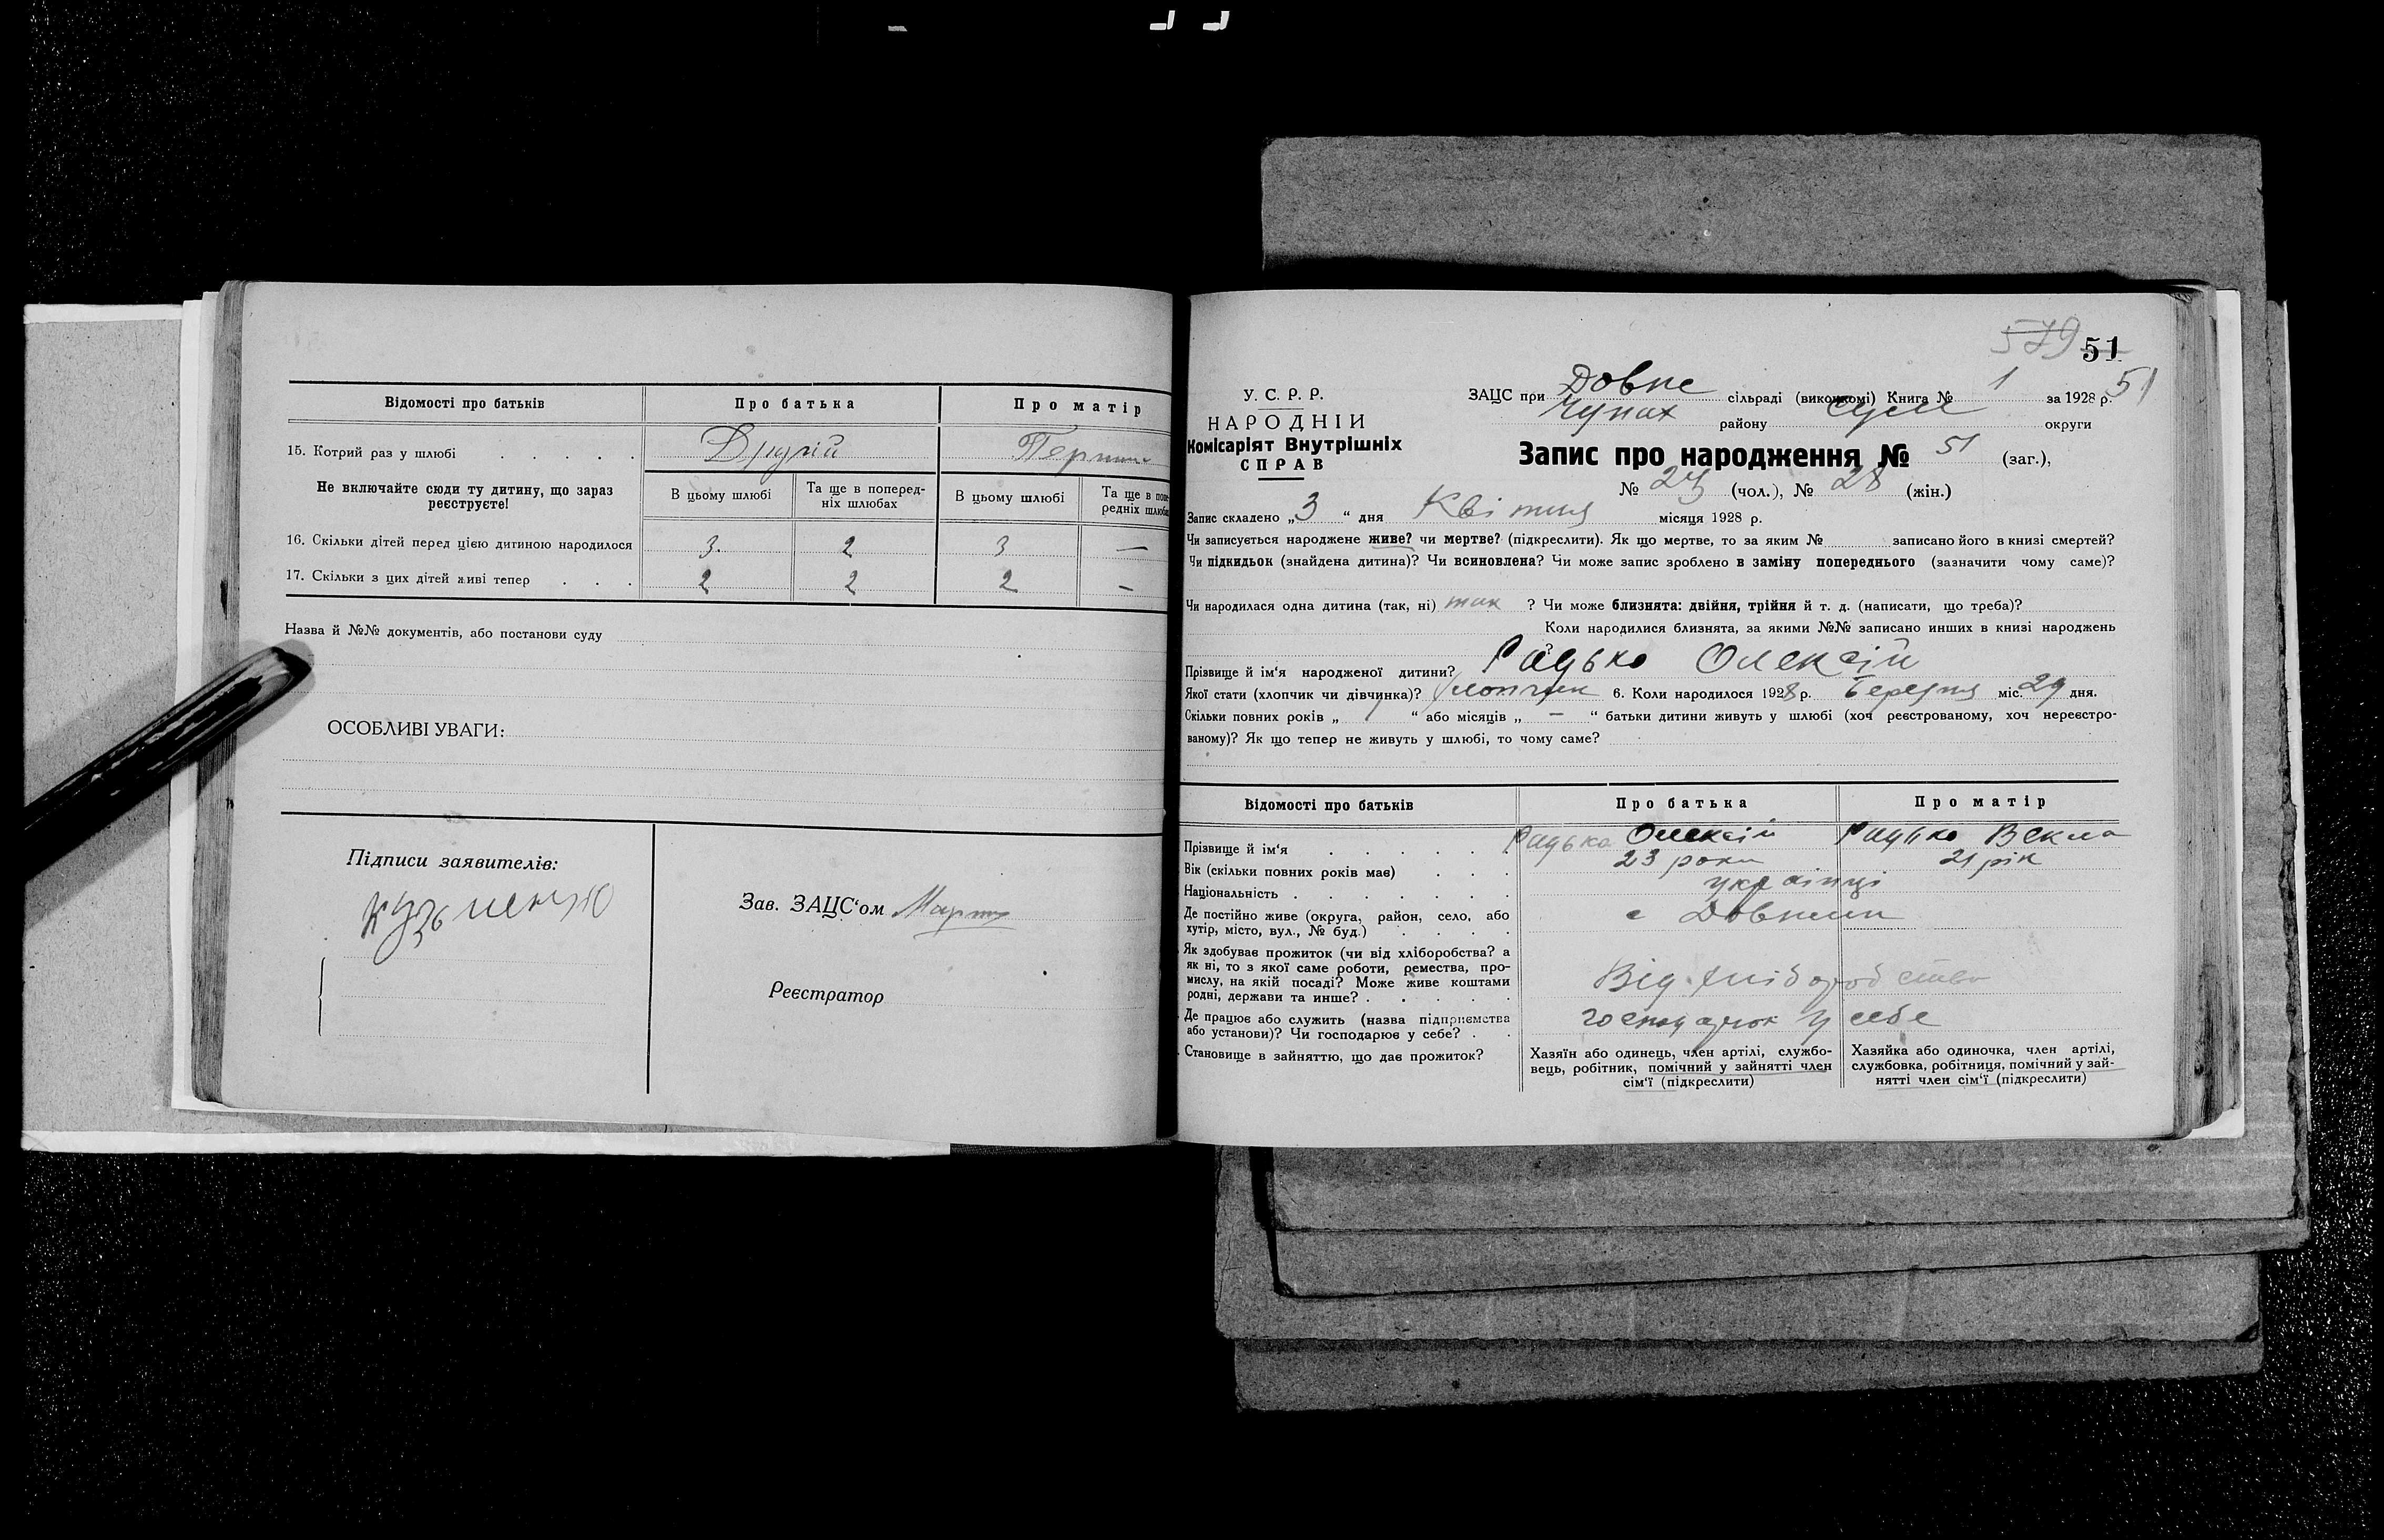 Відомості про батьків
Про батька
Про матір
15. Котрий раз у шлюбі
Другій
Не включайте сюди ту дитину, що зараз реєструєте!
В цьому шлюбі
Та ще в попередніх шлюбах
В цьому шлюбі
Та ще в попередніх шлюбах
16. Скільки дітей перед цією дитиною народилося 3. 2 3 —
17. Скільки з цих дітей живі тепер 2 2 2 —
Назва й №№ документів, або постанови суду
ОСОБЛИВІ УВАГИ:
Підписи заявителів:
Зав. ЗАЦС'ом
Реєстратор
579 51
51
У. С. Р. Р.
НАРОДНІЙ
Комісаріят Внутрішніх
СПРАВ
ЗАЦС при Довже сільраді (виконкомі) Книга № 1 за 1928 р.
Чупах району Сум округи
Запис про народження № 51 (заг.),
№ 23 (чол.), № 28 (жін.)
Запис складено „3“ дня Квітня місяця 1928 р.
Чи записується народжене живе? чи мертве? (підкреслити). Як що мертве, то за яким № записано його в книзі смертей?
Чи підкидьок (знайдена дитина)? Чи всиновлена? Чи може запис зроблено в заміну попереднього (зазначити чому саме)?
Чи народилася одна дитина (так, ні) так ? Чи може близнята: двійня, трійня й т. д. (написати, що треба)?
Коли народилися близнята, за якими №№ записано инших в книзі народжень
?
Прізвище й ім'я народженої дитини? Радько Олексій
Якої стати (хлопчик чи дівчинка)? Хлопчик 6. Коли народилося 1928 р. березня міс. 29 дня.
Скільки повних років „ “ або місяців „ — “ батьки дитини живуть у шлюбі (хоч реєстрованому, хоч нереєстро-
ваному)? Як що тепер не живуть у шлюбі, то чому саме?
Відомості про батьків
Про батька
Про матір
Прізвище й ім'я Радько Олексій Радько Векла
Вік (скільки повних років має) 23 роки 21 рік
Національність українці
Де постійно живе (округа, район, село, або
хутір, місто, вул., № буд.) с Довжик
Як здобуває прожиток (чи від хліборобства? а
як ні, то з якої саме роботи, ремества, про-
мислу, на якій посаді? Може живе коштами
родні, держави та инше? Від хліборобства
Де працює або служить (назва підприємства
або установи)? Чи господарює у себе? господарює у себе
Становище в зайняттю, що дає прожиток?
Хазяїн або одинець, член артілі, службо-
вець, робітник, помічний у зайнятті член
сім'ї (підкреслити)
Хазяйка або одиночка, член артілі,
службовка, робітниця, помічний у зай-
нятті член сім'ї (підкреслити)